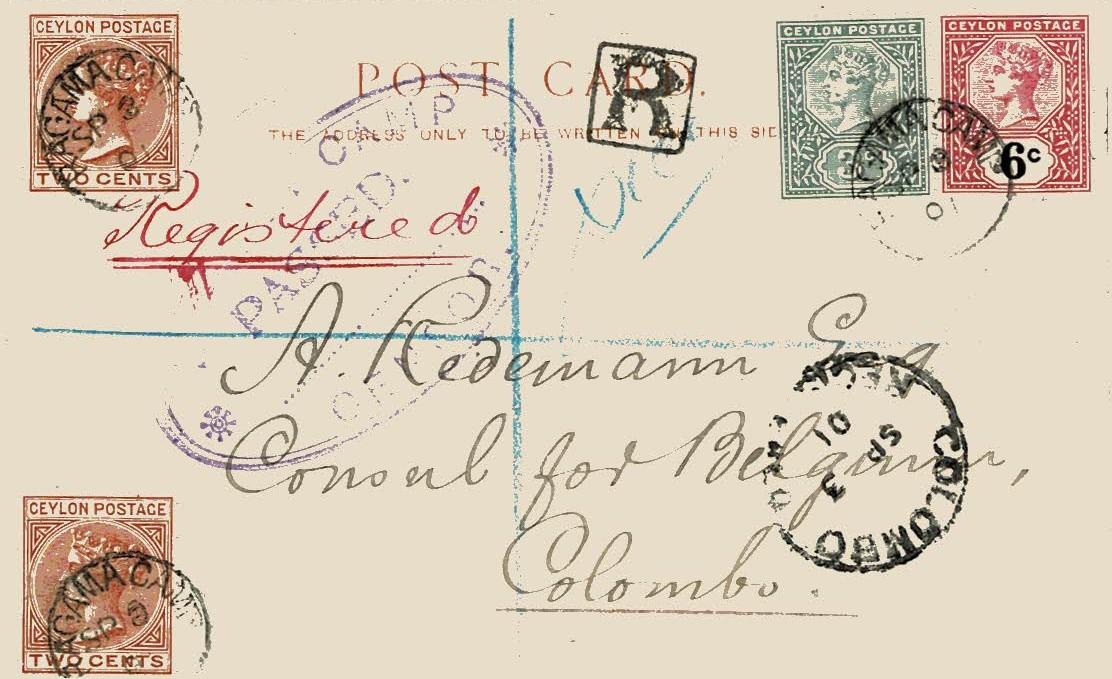 CEYLON POSTAGE
TWO CENTS
RAGAMA CAMP
SP 3
01
POST CARD.
THE ADDRESS ONLY TO BE WRITTEN THIS SIDE
R
CEYLON POSTAGE
CEYLON POSTAGE
6c
RAGAMA CAMP
SP 3
01
Registered
CAMP
PASSED.
A. Redemann Esq
Consul for Belgium,
Colombo.
COLOMBO
SP 3
01
CEYLON POSTAGE
TWO CENTS
RAGAMA CAMP
SP 3